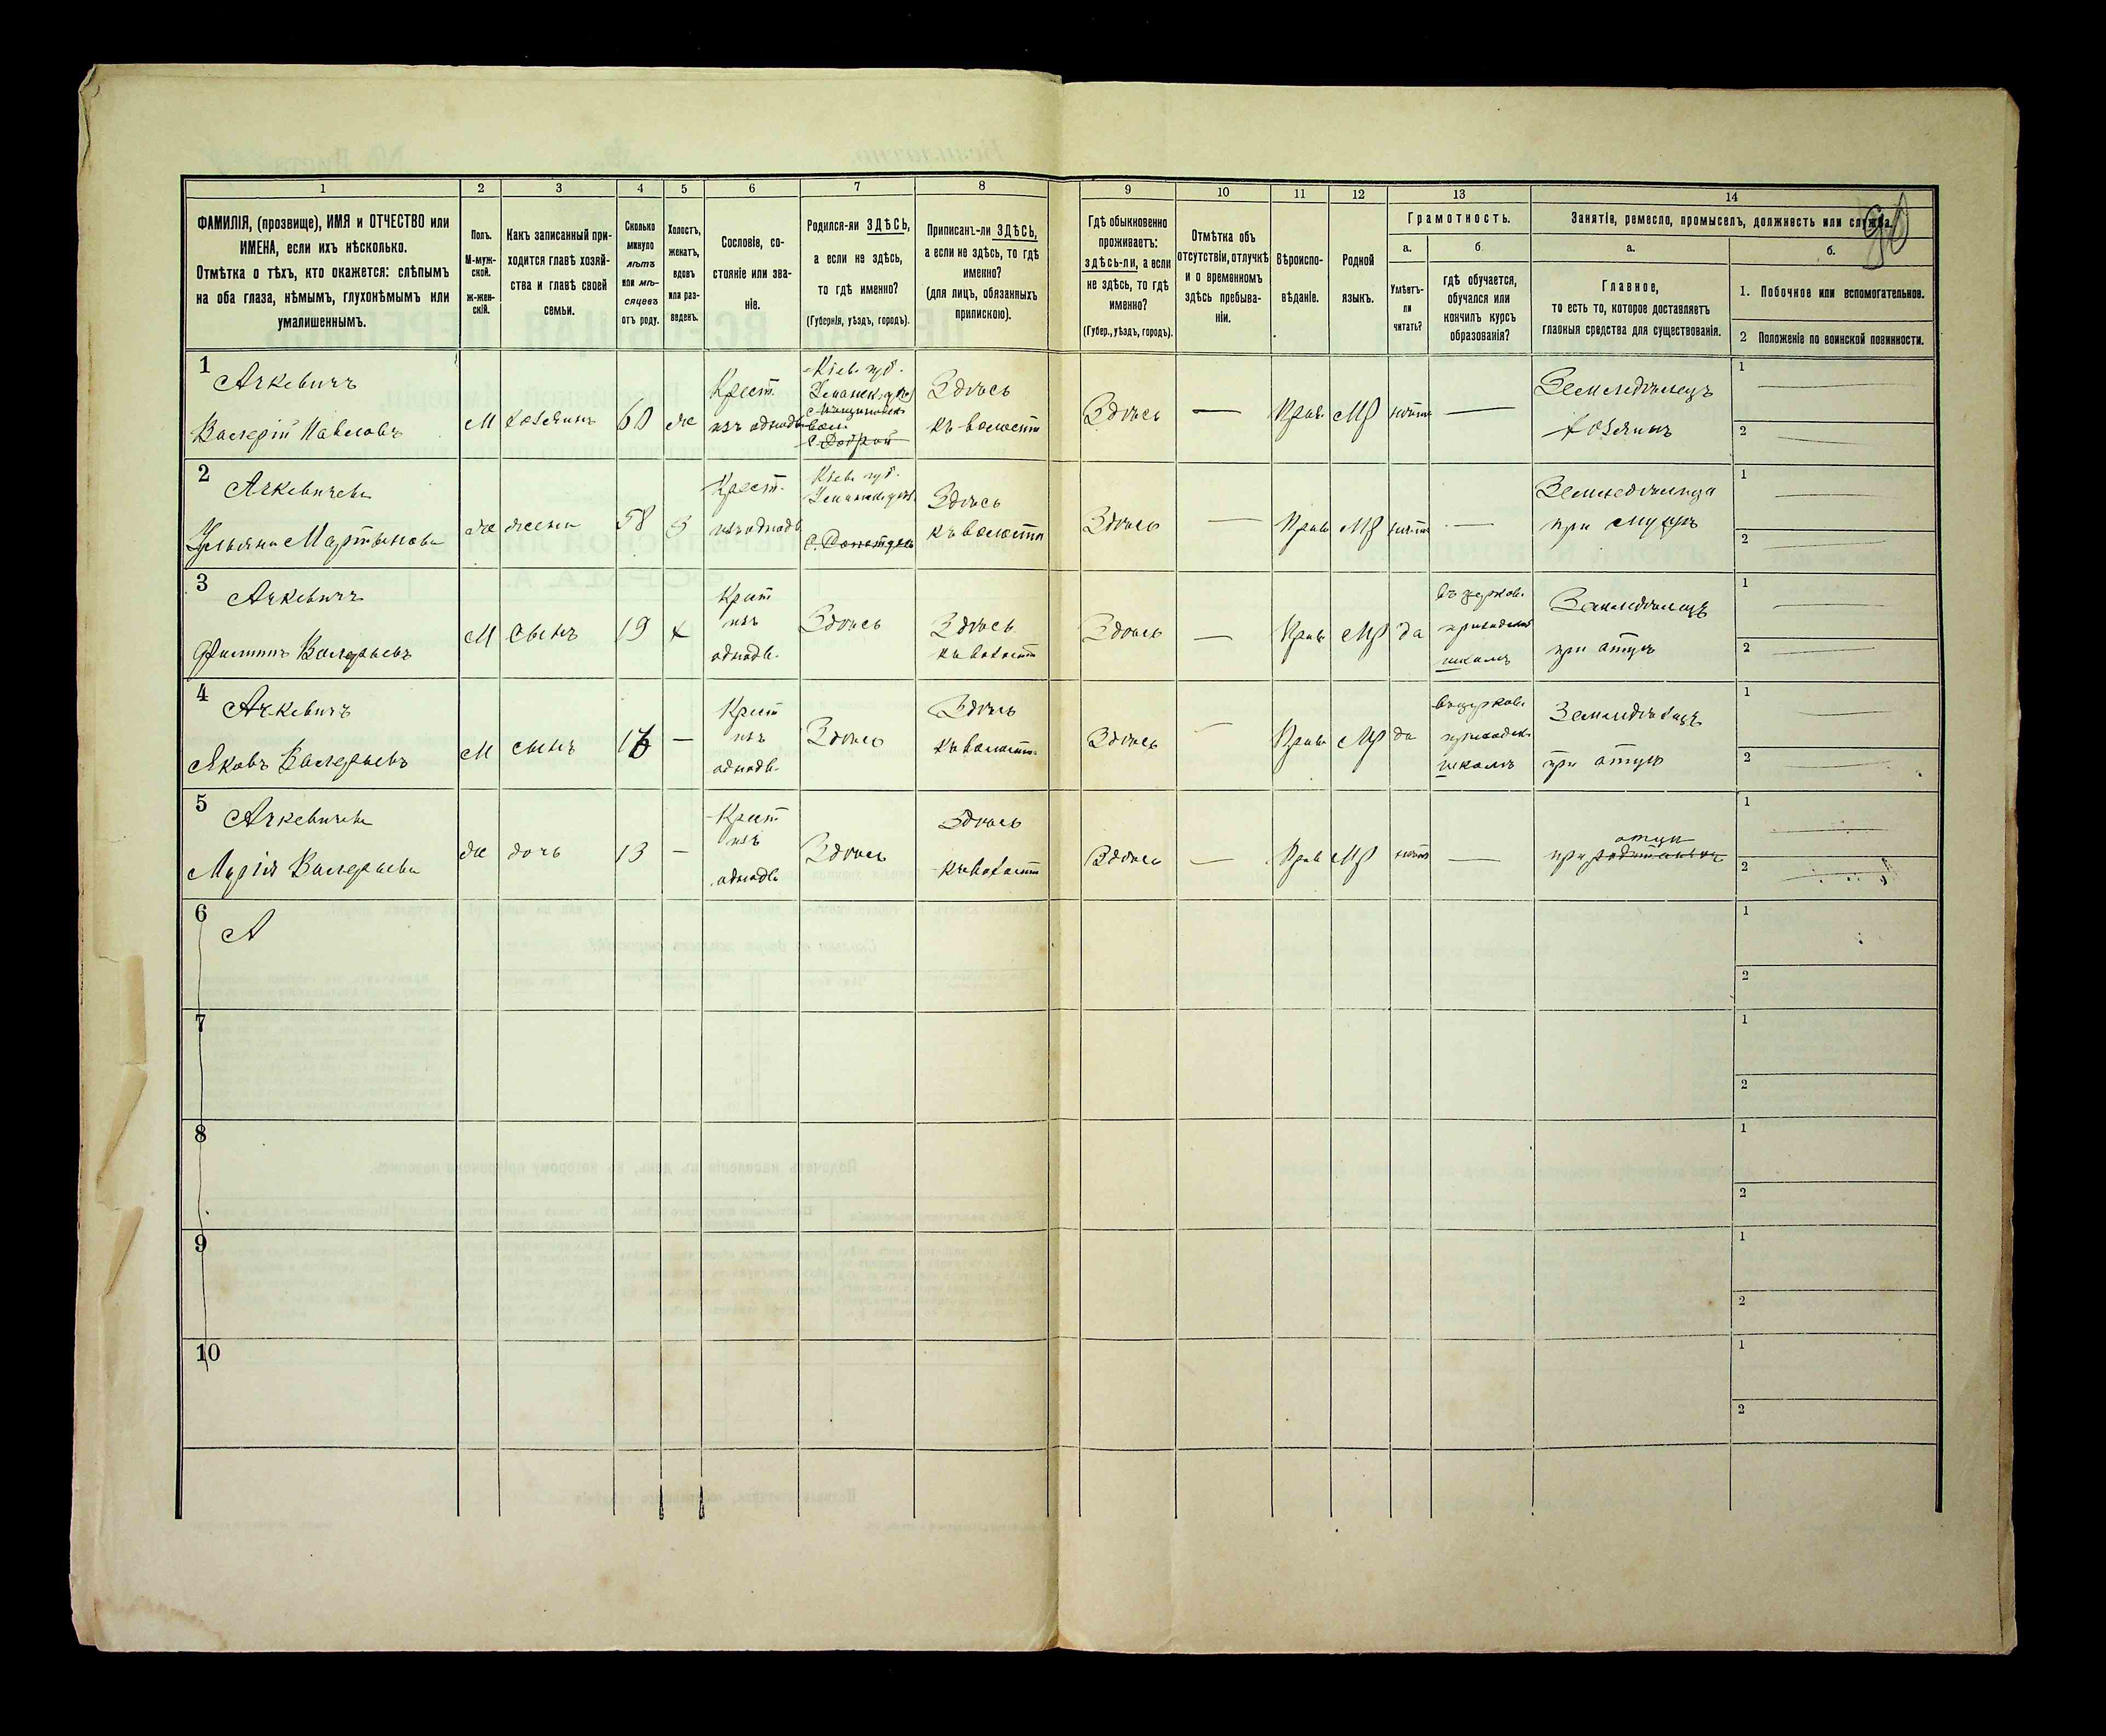 1
2
3
4
5
6
7
8
9
10
11
12
13
14
ФАМИЛІЯ, (прозвище), ИМЯ и ОТЧЕСТВО или
ИМЕНА, если ихъ нѣсколько.
Отмѣтка о тѣхъ, кто окажется: слѣпымъ
на оба глаза, нѣмымъ, глухонѣмымъ или
умалишеннымъ.
Полъ.
М-муж-
ской.
Ж-жен-
скій.
Какъ записанный при-
ходится главѣ хозяй-
ства и главѣ своей
семьи.
Сколько
минуло
лѣтъ
или мѣ-
сяцевъ
отъ роду.
Холостъ,
женатъ,
вдовъ
или раз-
веденъ.
Сословіе, со-
стояніе или зва-
ніе.
Родился-ли ЗДѢСЬ,
а если не здѣсь,
то гдѣ именно?
(Губернія, уѣздъ, городъ).
Приписанъ-ли ЗДѢСЬ,
а если не здѣсь, то гдѣ
именно?
(для лицъ, обязанныхъ
припискою).
Гдѣ обыкновенно
проживаетъ:
здѣсь-ли, а если
не здѣсь, то гдѣ
именно?
(Губер., уѣздъ, городъ).
Отмѣтка объ
отсутствіи, отлучкѣ
и о временномъ
здѣсь пребыва-
ніи.
Вѣроиспо-
вѣданіе.
Родной
языкъ.
Грамотность.
а.
Умѣетъ-
ли
читать?
б.
гдѣ обучается,
обучался или
кончилъ курсъ
образованія?
Занятіе, ремесло, промыселъ, должность или служба.
90
а.
Главное,
то есть то, которое доставляетъ
главныя средства для существованія.
б.
1. Побочное или вспомогательное.
2 Положеніе по воинской повинности.
1
Ачкевичъ
Валерій Павловъ
М
хозяинъ
60
ж
Крест.
изъ однодв
Кіев. губ.
Уманск. у.
Здѣсь
къ волости
Здѣсь
—
Прав.
МР
нѣтъ
—
Земледѣлецъ
хозяинъ
1
2
2
Ачкевичева
Ульяна Мартынова
ж
жена
58
З
Крест.
изъ однодв
Кіев. губ.
Уманск. уѣз.
Здѣсь
къ волости
Здѣсь
—
Прав
МР
нѣтъ
—
Земледѣлица
при мужѣ
1
2
3
Ачкевичъ
Филиппъ Валерьевъ
М
сынъ
19
х
Крест
изъ
однодв.
Здѣсь
Здѣсь
къ волости
Здѣсь
—
Прав
МР
да
въ церков.
приходской
школѣ
Земледѣлецъ
при отцѣ
1
2
4
Ачкевичъ
Яковъ Валерьевъ
М
сынъ
16
—
Крест
изъ
однодв.
Здѣсь
Здѣсь
къ волости
Здѣсь
—
Прав
МР
да
въ церков.
приходск.
школѣ
Земледѣлецъ
при отцѣ
1
2
5
Ачкевичева
Марія Валерьева
ж
дочь
13
—
Крест
изъ
однодв
Здѣсь
Здѣсь
къ волости
Здѣсь
—
Прав
МР
нѣтъ
—
отцѣ
при родителяхъ
1
2
6
А
1
2
7
1
2
8
1
2
9
1
2
10
1
2